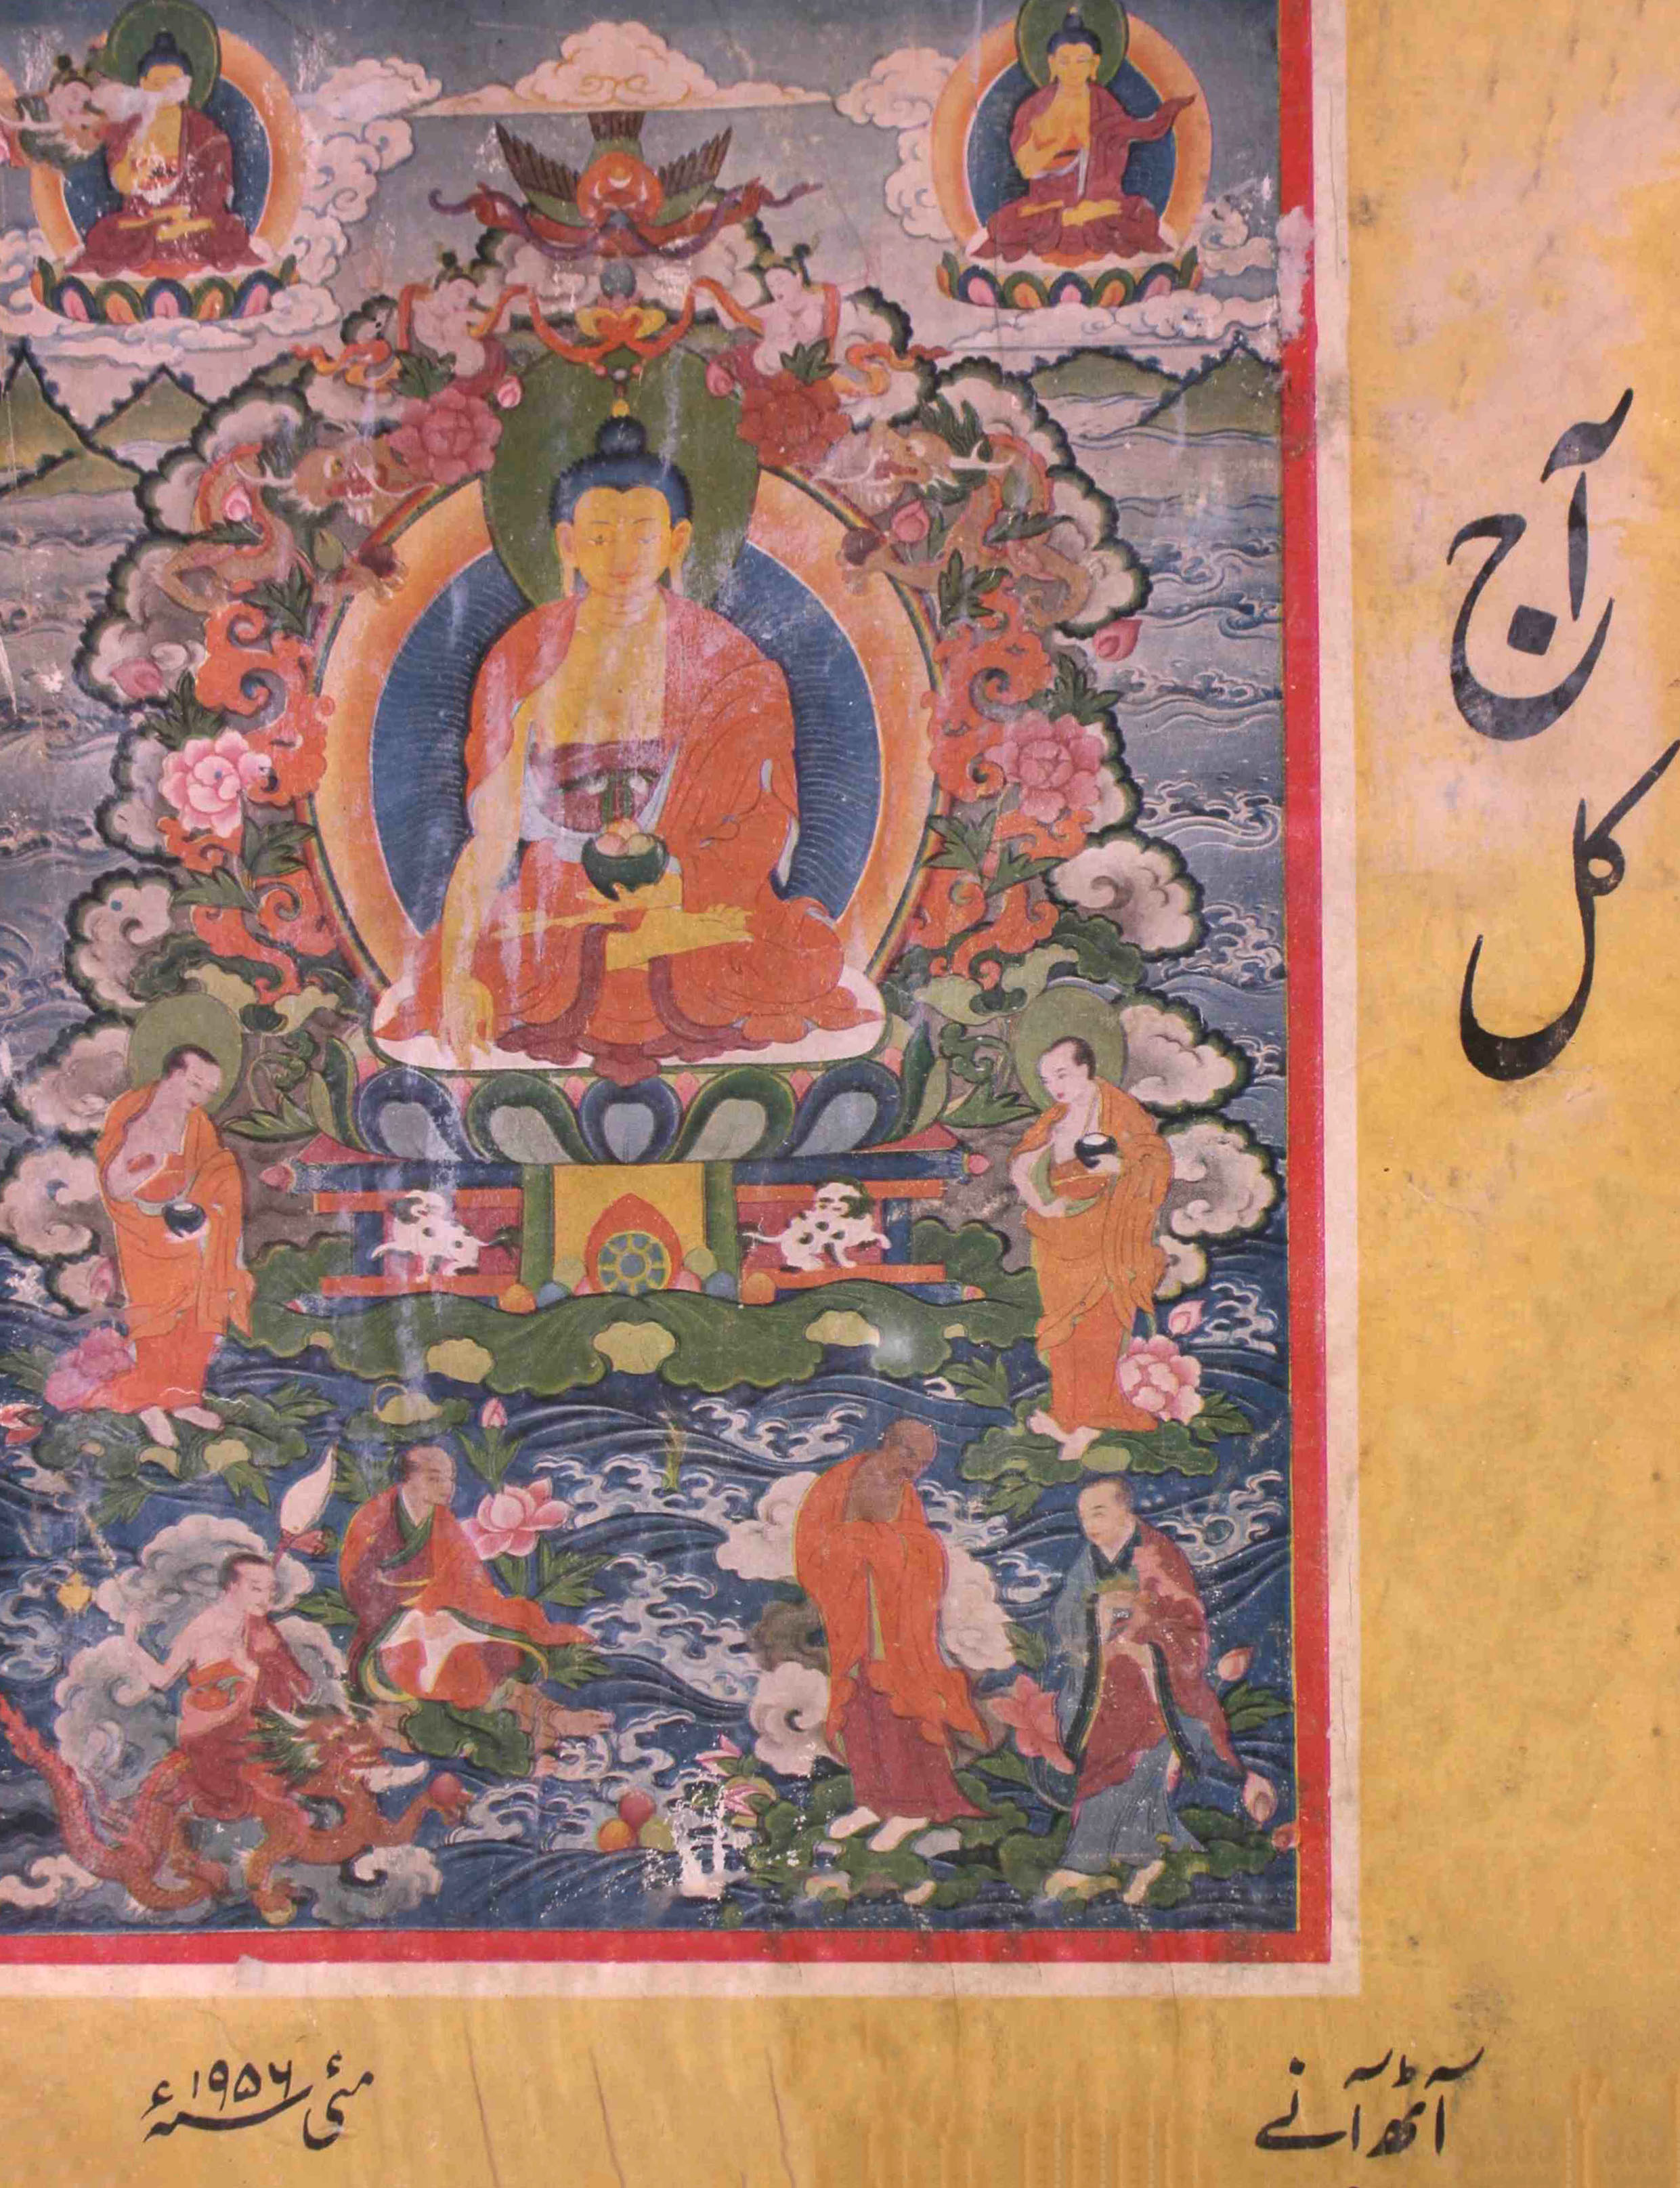 آج
کل
آٹھ آنے
مئی ۱۹۵۶ء